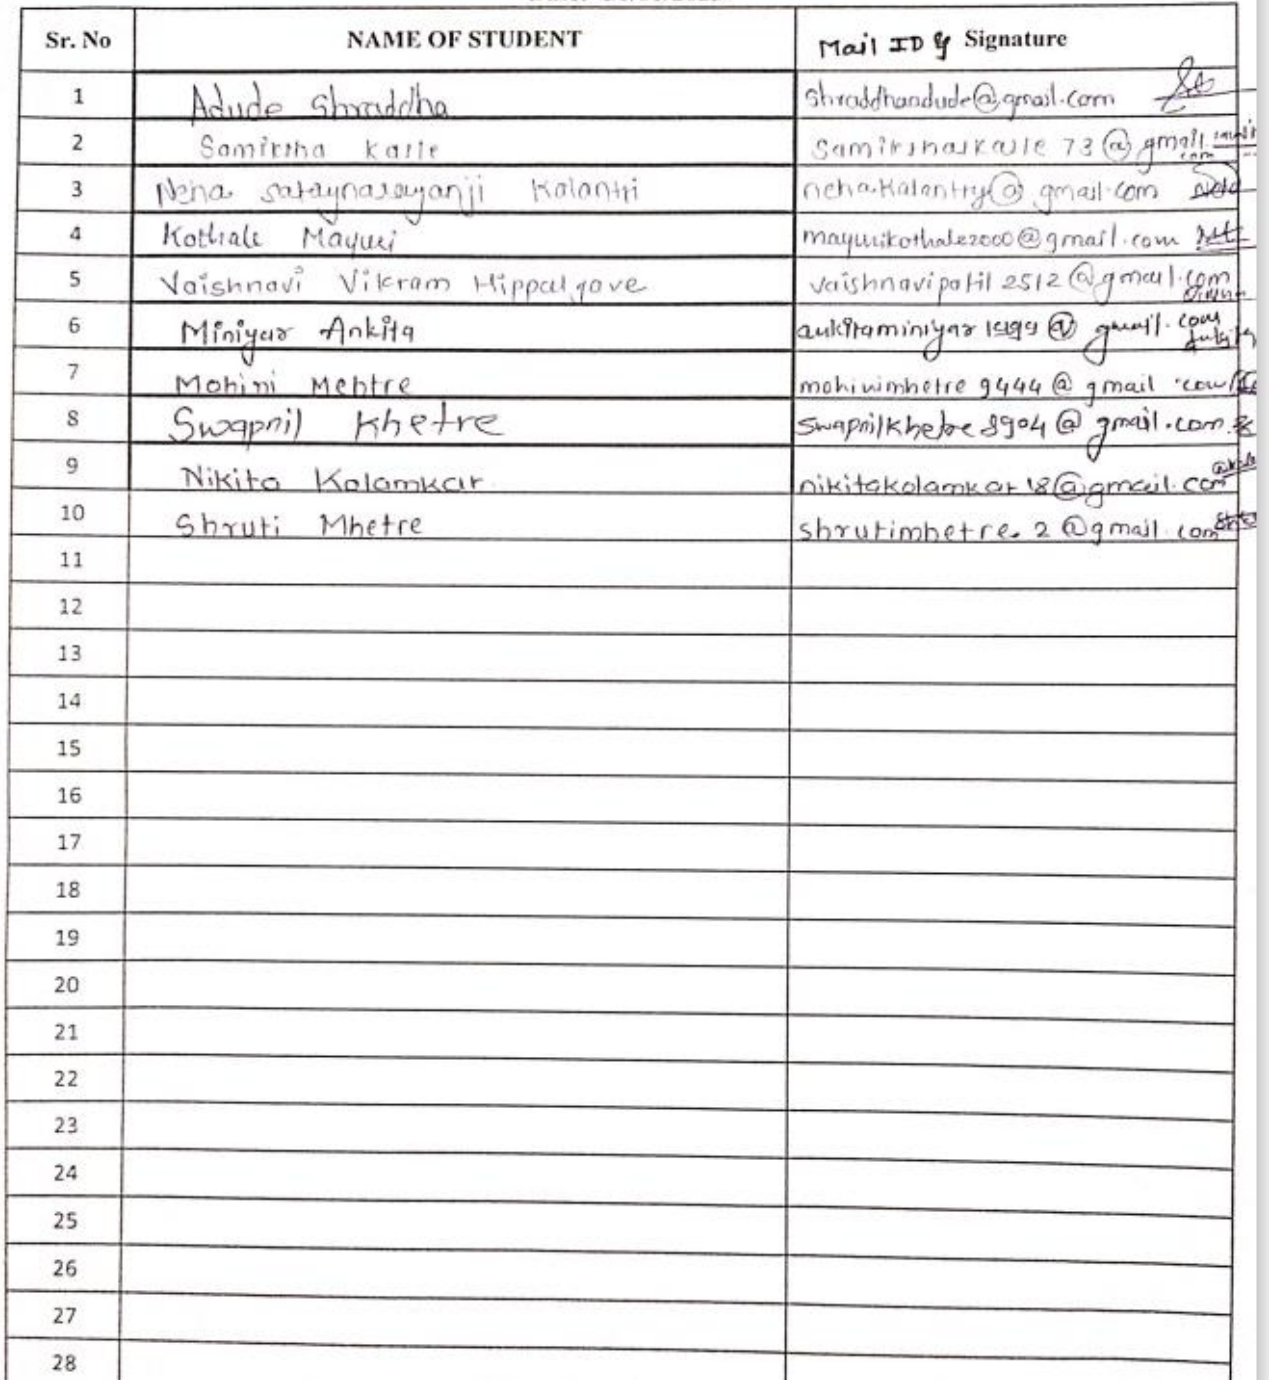 Sr. No NAME OF STUDENT Mail ID & Signature
1 Adude Shraddha shraddhaadude@gmail.com
2 Samiksha Kasle samikshaskasle 73@gmail.com
3 Neha sataynarayanji Kalantri neha.kalantry@gmail.com
4 Kothale Mayuri mayurikothale2000@gmail.com
5 Vaishnavi Vikram Hippalgave vaishnavipatil 2512@gmail.com
6 Miniyar Ankita ankitaminiyar 1999@gmail.com
7 Mohini Mehtre mohinimhetre 9444@gmail.com
8 Swapnil Khetre swapnilkhetre 8904@gmail.com
9 Nikita Kolamkar nikitakolamkar 18@gmail.com
10 Shruti Mhetre shrutimhetre.2@gmail.com
11
12
13
14
15
16
17
18
19
20
21
22
23
24
25
26
27
28